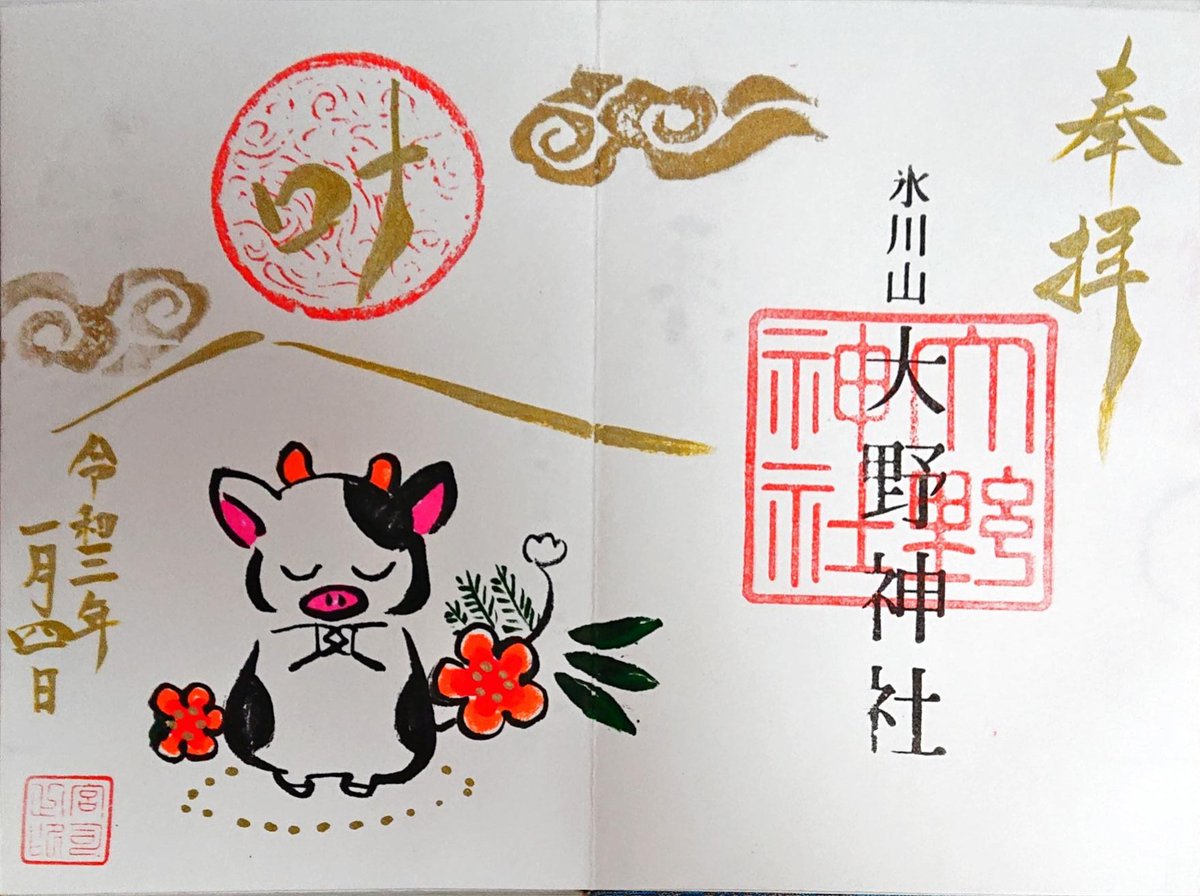 奉拝
氷川山大野神社
大野
神社
叶
令和三年
一月四日